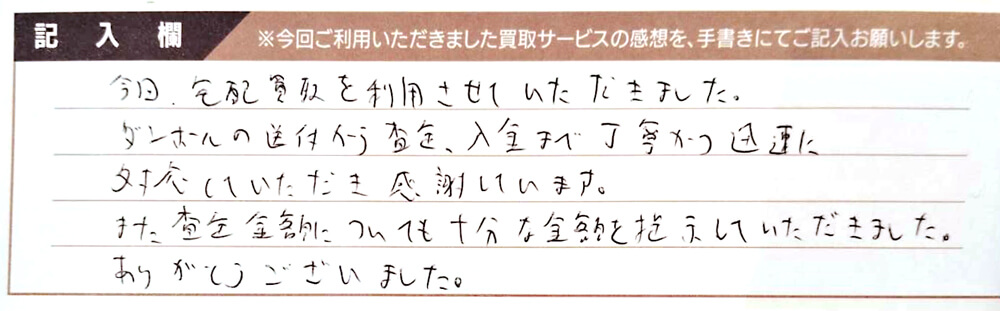 記入欄 ※今回ご利用いただきました買取サービスの感想を、手書きにてご記入お願いします。
今回、宅配買取を利用させていただきました。
ダンボールの送付から査定、入金まで丁寧かつ迅速に
対応していただき感謝しています。
また査定金額についても十分な金額を提示していただきました。
ありがとうございました。